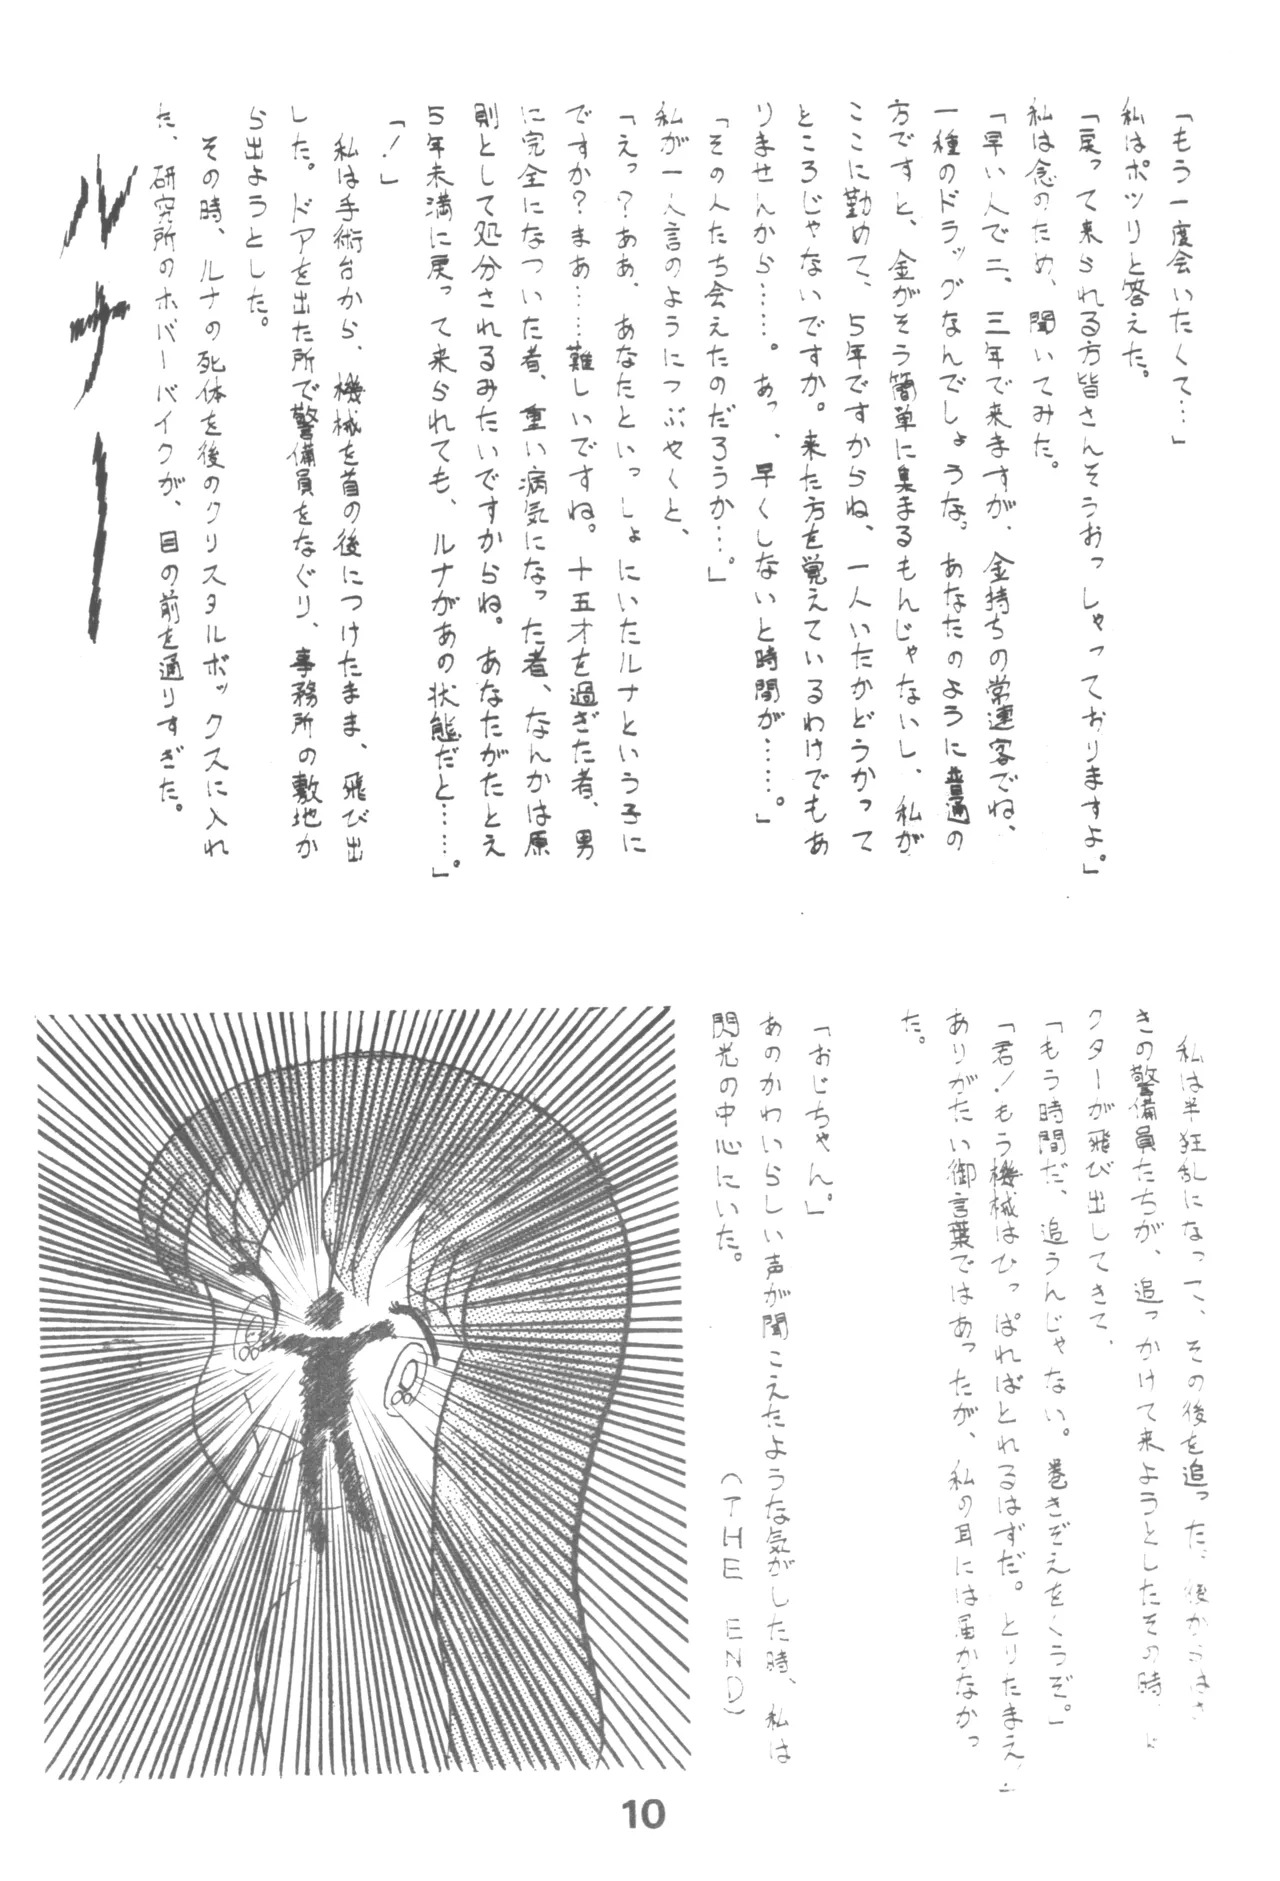 「もう一度会いたくて…」
私はポツリと答えた。
「戻って来られる方皆さんそうおっしゃっておりますよ。」
私は念のため、聞いてみた。
「早い人で二、三年で来ますが、金持ちの常連客でね、
一種のドラッグなんでしょうな。あなたのように普通の
方ですと、金がそう簡単に集まるもんじゃないし、私が
ここに勤めて、5年ですからね、一人いたかどうかって
ところじゃないですか。来た方を覚えているわけでもあ
りませんから……。あっ、早くしないと時間が……。」
「その人たち会えたのだろうか…。」
私が一人言のようにつぶやくと、
「えっ？ああ、あなたといっしょにいたルナという子に
ですか？まあ……難しいですね。十五才を過ぎた者、男
に完全になついた者、重い病気になった者、なんかは原
則として処分されるみたいですからね。あなたがたとえ
5年未満に戻って来られても、ルナがあの状態だと……。」
「！」
私は手術台から、機械を首の後につけたまま、飛び出
した。ドアを出た所で警備員をなぐり、事務所の敷地か
ら出ようとした。
その時、ルナの死体を後のクリスタルボックスに入れ
た、研究所のホバーバイクが、目の前を通りすぎた。
ルナー
私は半狂乱になって、その後を追った。後からはさ
きの警備員たちが、追っかけて来ようとしたその時、ド
クターが飛び出してきて、
「もう時間だ、追うんじゃない。巻きぞえをくうぞ。」
「君！もう機械はひっぱればとれるはずだ。とりたまえ」
ありがたい御言葉ではあったが、私の耳には届かなかっ
た。
「おじちゃん。」
あのかわいらしい声が聞こえたような気がした時、私は
閃光の中心にいた。
（THE END）
10